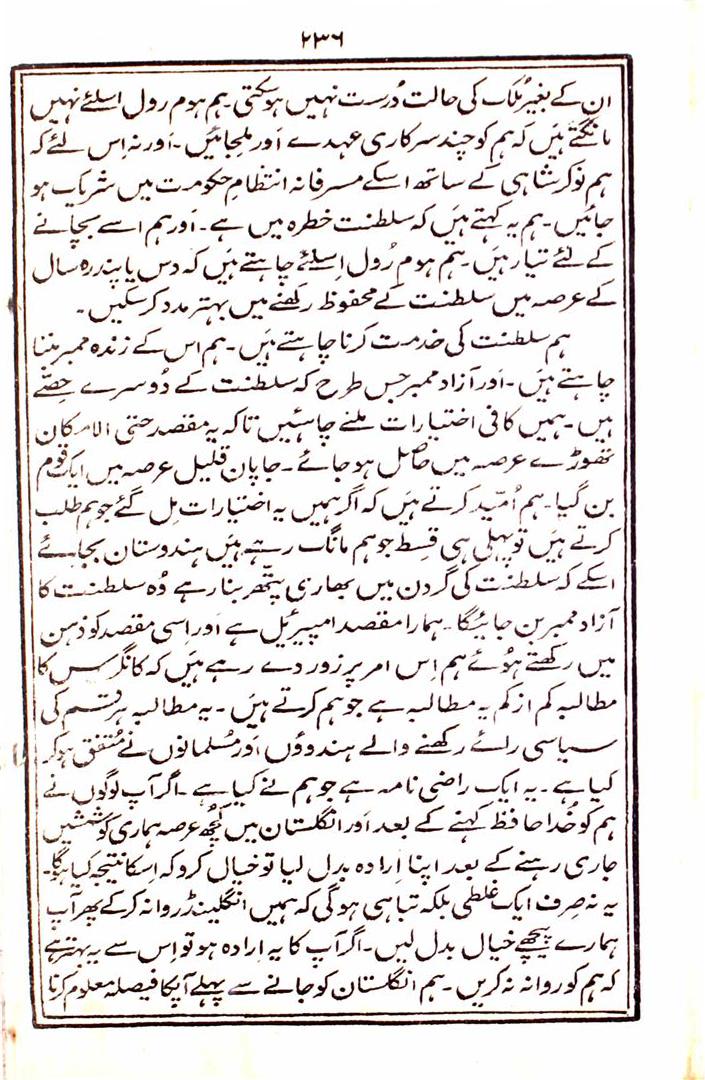 ۲۳۶
ان کے بغیر ملک کی حالت درست نہیں ہو سکتی۔ ہم ہوم رول اسلئے نہیں
مانگتے ہیں کہ ہم کو چند سرکاری عہدے اَور ملجائیں۔ اَور نہ اِس لئے کہ
ہم نوکر شاہی کے ساتھ اسکے مسرفانہ انتظام حکومت میں شریک ہو
جائیں۔ ہم یہ کہتے ہیں کہ سلطنت خطرہ میں ہے۔ اَور ہم اسے بچانے
کے لئے تیار ہیں۔ ہم ہوم رُول اِسلئے چاہتے ہیں کہ دس یا پندرہ سال
کے عرصہ میں سلطنت کے محفوظ رکھنے میں بہتر مدد کر سکیں۔
ہم سلطنت کی خدمت کرنا چاہتے ہیں۔ ہم اس کے زندہ ممبر بننا
چاہتے ہیں۔ اَور آزاد ممبر جس طرح کہ سلطنت کے دُوسرے حِصّے
ہیں۔ ہمیں کافی اختیارات ملنے چاہئیں تاکہ یہ مقصد حتی الامکان
تھوڑے عرصہ میں حاصل ہو جائے۔ جاپان قلیل عرصہ میں ایک قوم
بن گیا۔ ہم اُمّید کرتے ہیں کہ اگر ہمیں یہ اختیارات مِل گئے جو ہم طلب
کرتے ہیں تو پہلی ہی قسط جو ہم مانگ رہے ہیں ہندوستان بجائے
اسکے کہ سلطنت کی گردن میں بھاری پتّھر بنا رہے وُہ سلطنت کا
آزاد ممبر بن جائیگا۔ ہمارا مقصد امپیرئیل ہے اَور اِسی مقصد کو ذہن
میں رکھتے ہُوئے ہم اِس امر پر زور دے رہے ہیں کہ کانگرس کا
مطالبہ کم از کم یہ مطالبہ ہے جو ہم کرتے ہیں۔ یہ مطالبہ ہر قسم کی
سیاسی رائے رکھنے والے ہندوؤں اَور مُسلمانوں نے مُتفق ہو کر
کیا ہے۔ یہ ایک راضی نامہ ہے جو ہم نے کیا ہے۔ اگر آپ لوگوں نے
ہم کو خُدا حافظ کہنے کے بعد اَور انگلستان میں کُچھ عرصہ ہماری کوششیں
جاری رہنے کے بعد اپنا اِرادہ بدل لیا تو خیال کرو کہ اِسکا نتیجہ کیا ہوگا۔
یہ نہ صِرف ایک غلطی بلکہ تباہی ہوگی کہ ہمیں انگلینڈ روانہ کرکے پھر آپ
ہمارے پیچھے خیال بدل لیں۔ اگر آپ کا یہ اِرادہ ہو تو اِس سے یہ بہتر ہے
کہ ہم کو روانہ نہ کریں۔ ہم انگلستان کو جانے سے پہلے آپکا فیصلہ معلوم کرنا